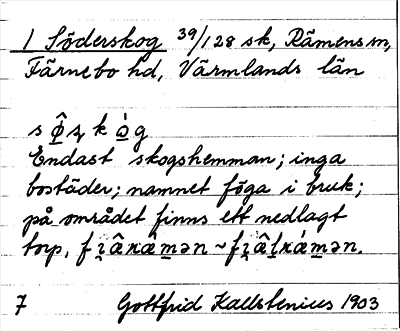 1 Söderskog 39/128 sk, Rämens sn,
Färnebo hd, Värmlands län
Endast skogshemman; inga
bostäder; namnet föga i bruk;
på området finns ett nedlagt
torp,
7 Gottfrid Kallstenius 1903